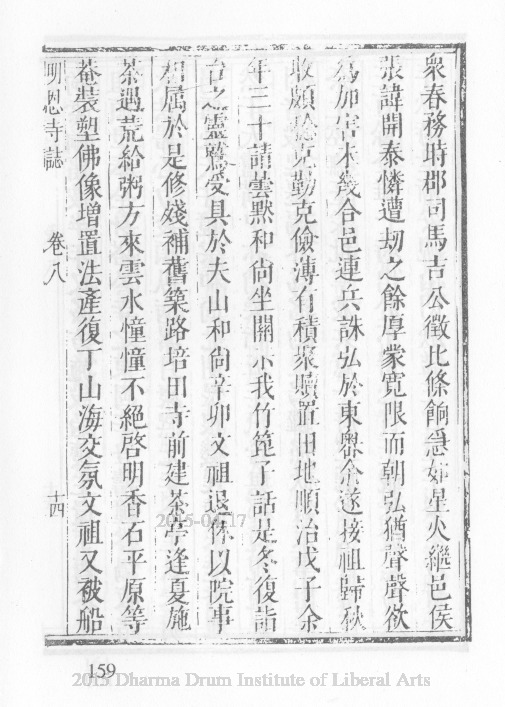 衆春務時郡司馬吉公徵比條餉急如星火繼邑侯
張諱開泰憐遭刼之餘厚蒙寬限而朝弘猶聲聲欲
爲加害未幾合邑連兵誅弘於東嶴余遂接祖歸秋
收頗稔克勤克儉薄有積聚贖置田地順治戊子余
年三十請曇默和尚坐關示我竹箆子話是冬復詣
台之靈鷲受具於夫山和尚辛卯文祖退休以院事
相属於是修殘補舊築路培田寺前建茶亭逢夏施
茶遇荒給粥方來雲水憧憧不絕啓明香石平原等
菴裝塑佛像增置法產復丁山海交氛文祖又被船
明恩寺誌 卷八 十四
2015-04-17
159
2015 Dharma Drum Institute of Liberal Arts